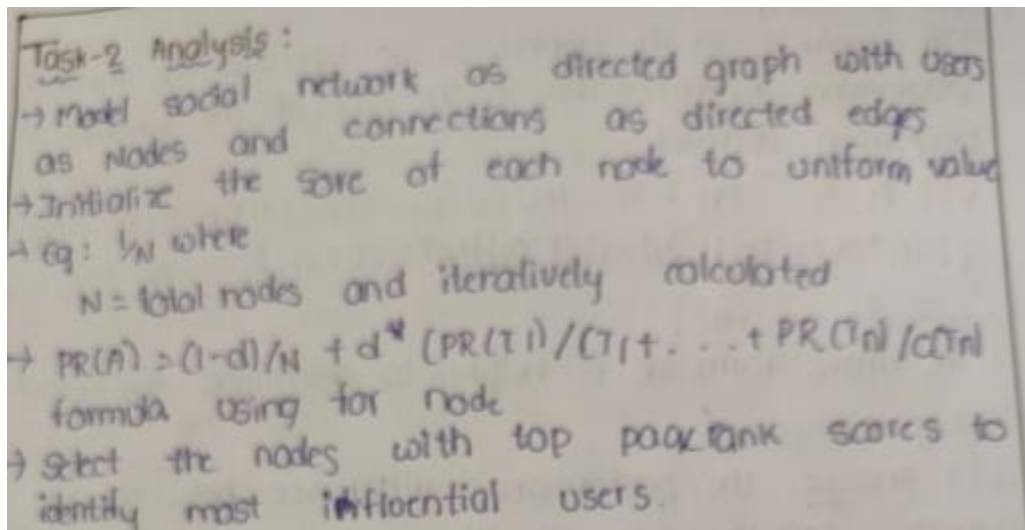 Task-2 Analysis :
→ Model social network as directed graph with users
as Nodes and connections as directed edges
→ Initialize the sore of each node to uniform value
→ eg: 1/N where
N = total nodes and iteratively calcolated
→ PR(A) = (1-d)/N + d* (PR(T1)/C(T1+. . .+ PR(Tn)/C(Tn)
formula using for node
→ select the nodes with top pagerank scores to
identify most influential users